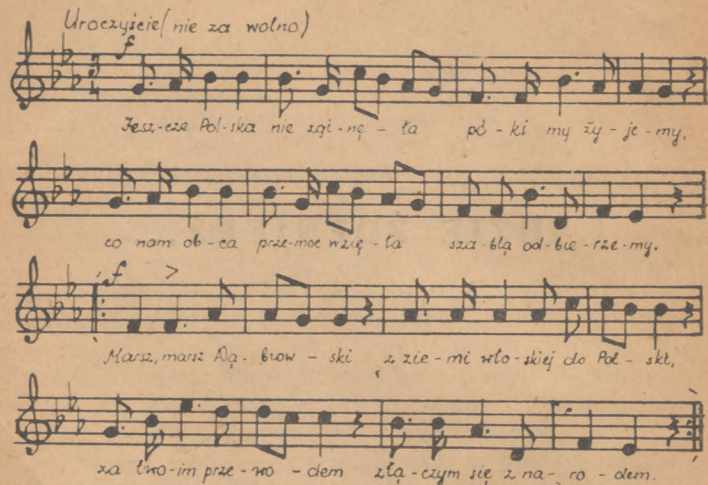 Uroczyście (nie za wolno)
f
3
4
Jesz-cze Pol-ska nie zgi-nę-ła pó-ki my ży-je-my,
co nam ob-ca prze-moc wzię-ła sza-blą od-bie-rze-my.
f >
Marsz, marsz Dą-brow-ski z zie-mi wło-skiej do Pol-ski,
za two-im prze-wo-dem złą-czym się z na-ro-dem.